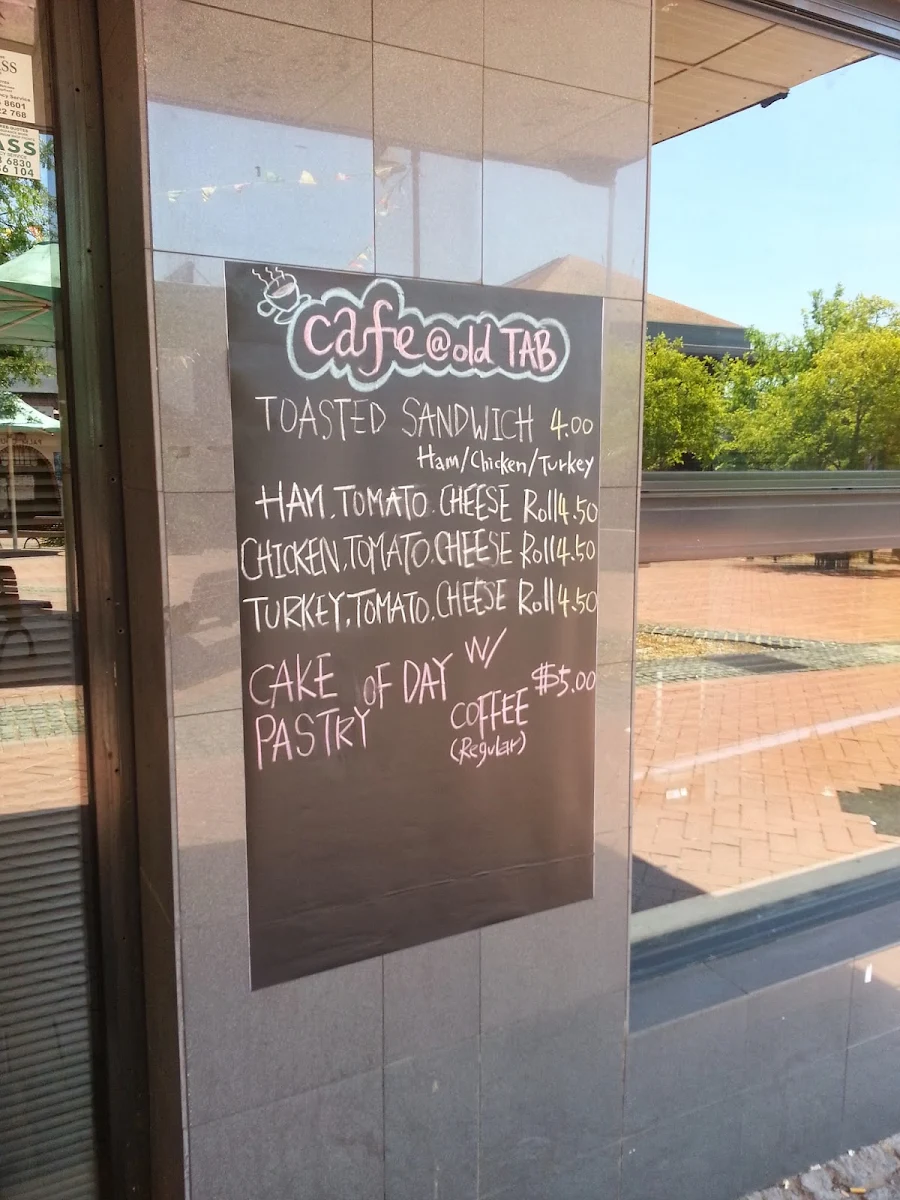 SS
8601
2 768
ASS
6830
6 104
cafe@old TAB
TOASTED SANDWICH 4.00
Ham/Chicken/Turkey
HAM.TOMATO.CHEESE Roll 4.50
CHICKEN.TOMATO.CHEESE Roll 4.50
TURKEY.TOMATO.CHEESE Roll 4.50
CAKE OF DAY W/ $5.00
PASTRY COFFEE
(Regular)